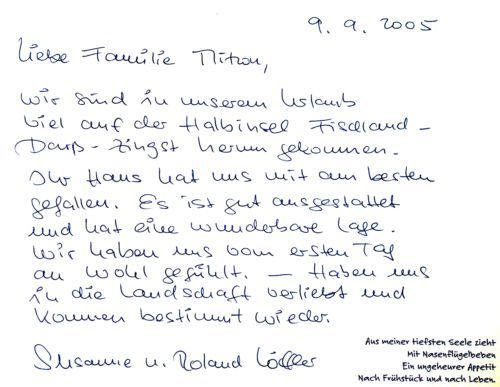 9. 9. 2005
Liebe Familie Nitzow,
wir sind in unserem Urlaub
viel auf der Halbinsel Fischland-
Darß-Zingst herum gekommen.
Ihr Haus hat uns mit am besten
gefallen. Es ist gut ausgestattet
und hat eine wunderbare Lage.
Wir haben uns vom ersten Tag
an wohl gefühlt. – Haben uns
in die Landschaft verliebt und
kommen bestimmt wieder.
Susanne u. Roland Löffler
Aus meiner tiefsten Seele zieht
Mit Nasenflügelbeben
Ein ungeheurer Appetit
Nach Frühstück und nach Leben.